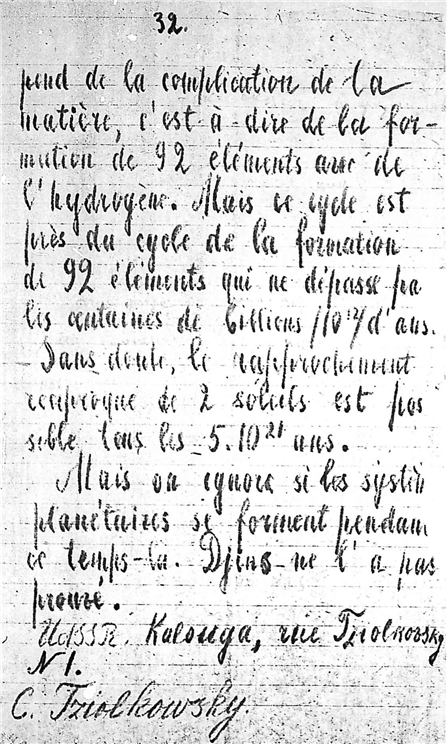 32.
pend de la complication de la
matière, c'est-à-dire de la for-
mation de 92 éléments avec de
l'hydrogène. Mais ce cycle est
près du cycle de la formation
de 92 éléments qui ne dépasse pa
les centaines de billions /10¹⁴/ d'ans.
Sans doute, le rapprochement
reciproque de 2 soleils est pos
sible tous les 5.10²¹ ans.
Mais on ignore si les systèm
planétaires se forment pendan
ce temps-la. Djins ne l'a pas
prouvé.
UdSSR. Kalouga, rue Tziolkowsky
N 1.
C. Tziolkowsky.